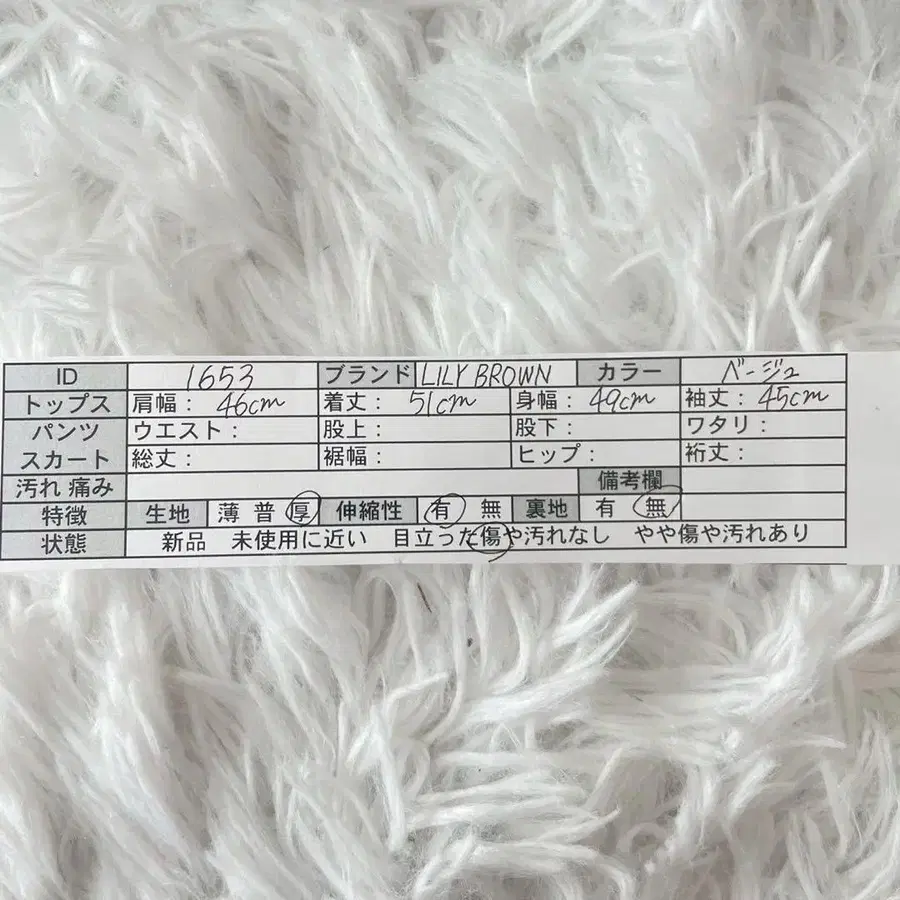 ID 1653 ブランド LILY BROWN カラー ベージュ
トップス 肩幅： 46cm 着丈： 51cm 身幅： 49cm 袖丈： 45cm
パンツ ウエスト： 股上： 股下： ワタリ：
スカート 総丈： 裾幅： ヒップ： 裄丈：
汚れ 痛み 備考欄
特徴 生地 薄 普 厚 伸縮性 有 無 裏地 有 無
状態 新品 未使用に近い 目立った傷や汚れなし やや傷や汚れあり